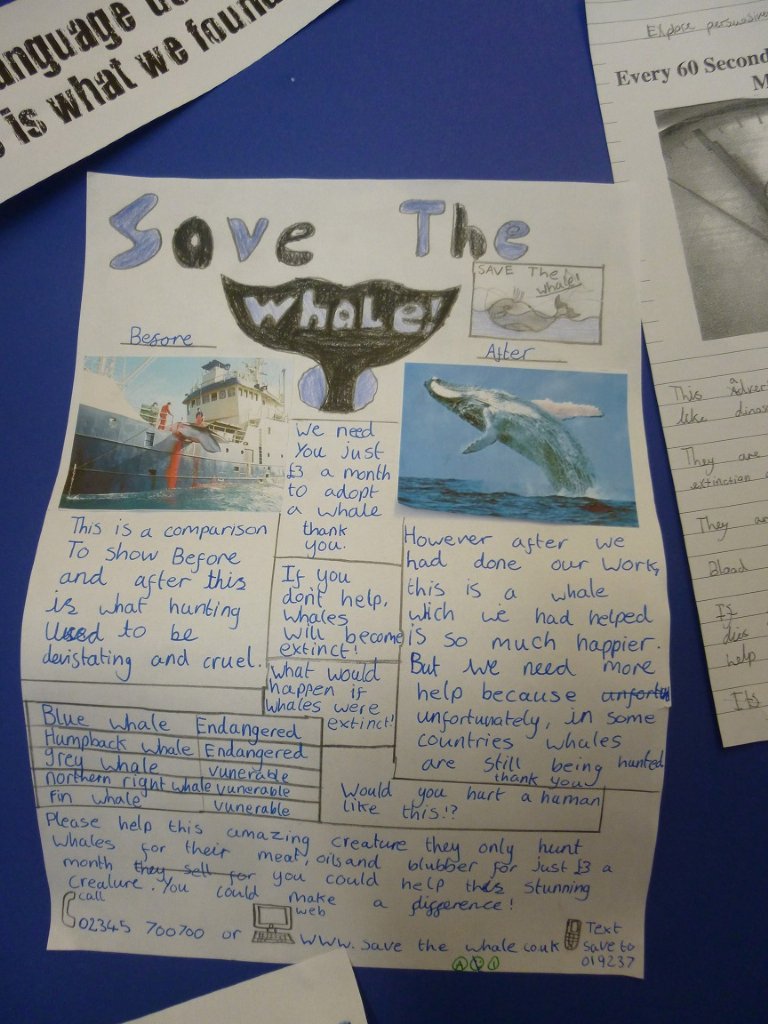 anguage
is what we foun
Explore persuasive
Every 60 Second
M
Save The
Whale!
SAVE The
whale!
Before
After
We need
You just
£3 a month
to adopt
a whale
thank
you.
This is a comparison
To show Before
and after this
is what hunting
Used to be
devistating and cruel.
If you
don't help,
whales
will become
extinct!
What would
happen if
whales were
extinct!
However after we
had done our work,
this is a whale
wich we had helped
is so much happier.
But we need more
help because
unfortunately, in some
countries whales
are still being hunted
thank you
Blue whale Endangered
Humpback whale Endangered
grey whale vunerable
northern right whale vunerable
fin whale vunerable
Would you hurt a human
like this!?
Please help this amazing creature they only hunt
whales for their meat, oils and blubber for just £3 a
month they sell for you could help this stunning
creature. You could make a difference!
call
02345 700700 or
web
www. save the whale.co.uk
Text
save to
019237
This advert
like dinos
They are
extinction
They ar
Blood
If
dies
help
It's